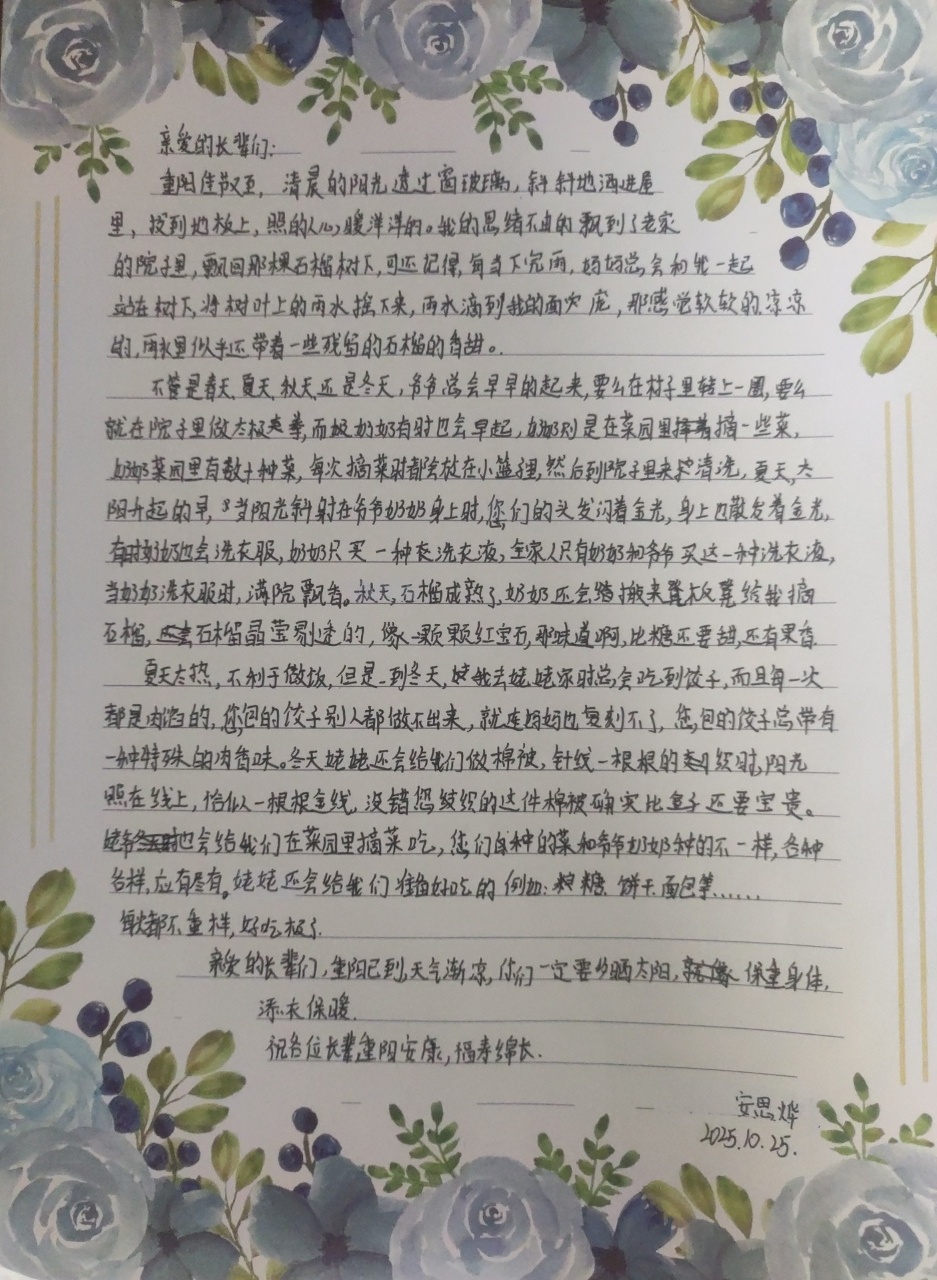 亲爱的长辈们:
重阳佳节又至，清晨的阳光透过窗玻璃，斜斜地洒进屋
里，投到地板上，照的人心暖洋洋的。我的思绪不由的飘到了老家
的院子里，飘回那棵石榴树下，可还记得，每当下完雨，奶奶总会和我一起
站在树下，将树叶上的雨水摇下来，雨水滴到我的面庞，那感觉软软的凉凉
的，雨水里似乎还带着一些残留的石榴的香甜。
不管是春天、夏天、秋天还是冬天，爷爷总会早早的起来，要么在村子里转上一圈，要么
就在院子里做太极拳，而奶奶有时也会早起，奶奶则是在菜园里摘一些菜，
奶奶菜园里有数十种菜，每次摘菜时都会放在小篮子里，然后到院子里来清洗，夏天，太
阳升起的早，当阳光斜射在爷爷奶奶身上时，您们的头发闪着金光，身上也散发着金光，
有时奶奶也会洗衣服，奶奶只买一种洗衣液，全家人只有奶奶和爷爷买这一种洗衣液，
当奶奶洗衣服时，满院飘香。秋天，石榴成熟了，奶奶还会搬来板凳给我摘
石榴，石榴晶莹剔透的，像一颗颗红宝石，那味道啊，比糖还要甜，还有果香
夏天太热，不利于做饭，但是一到冬天，我去姥姥家时总会吃到饺子，而且每一次
都是肉馅的，您包的饺子别人都做不出来，就连妈妈也复刻不了，您包的饺子总带有
一种特殊的肉香味。冬天姥姥还会给我们做棉被，针线一根根的织时，阳光
照在线上，恰似一根根金线，没错您纺织的这件棉被确实比金子还要宝贵。
也会给我们在菜园里摘菜吃，您们自种的菜和爷爷奶奶种的不一样，各种
各样，应有尽有。姥姥还会给我们准备好吃的例如：糖 饼干、面包等……
每次都不重样，好吃极了。
亲爱的长辈们，重阳已到，天气渐凉，你们一定要多晒太阳，保重身体，
添衣保暖。
祝各位长辈重阳安康，福寿绵长.
安思烨
2025.10.25.